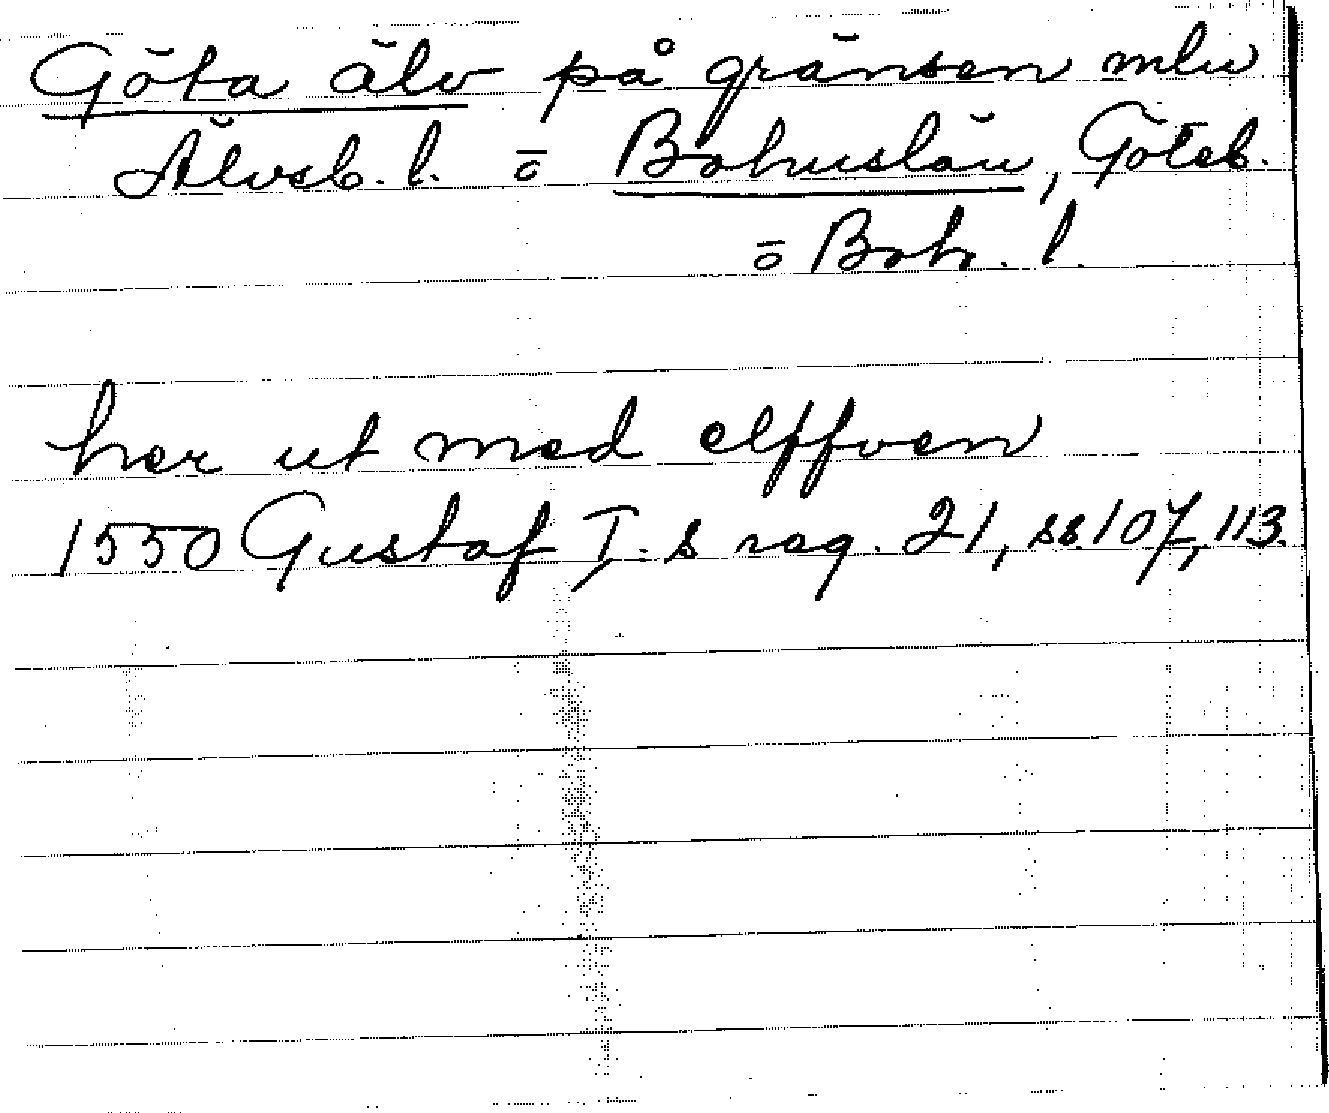 Göta älv på gränsen mlu
Älvsb. l. ō Bohuslän, Göteb.
ō Boh. l.
her ut med elffven
1550 Gustaf I. s reg. 21, ss 107, 113.